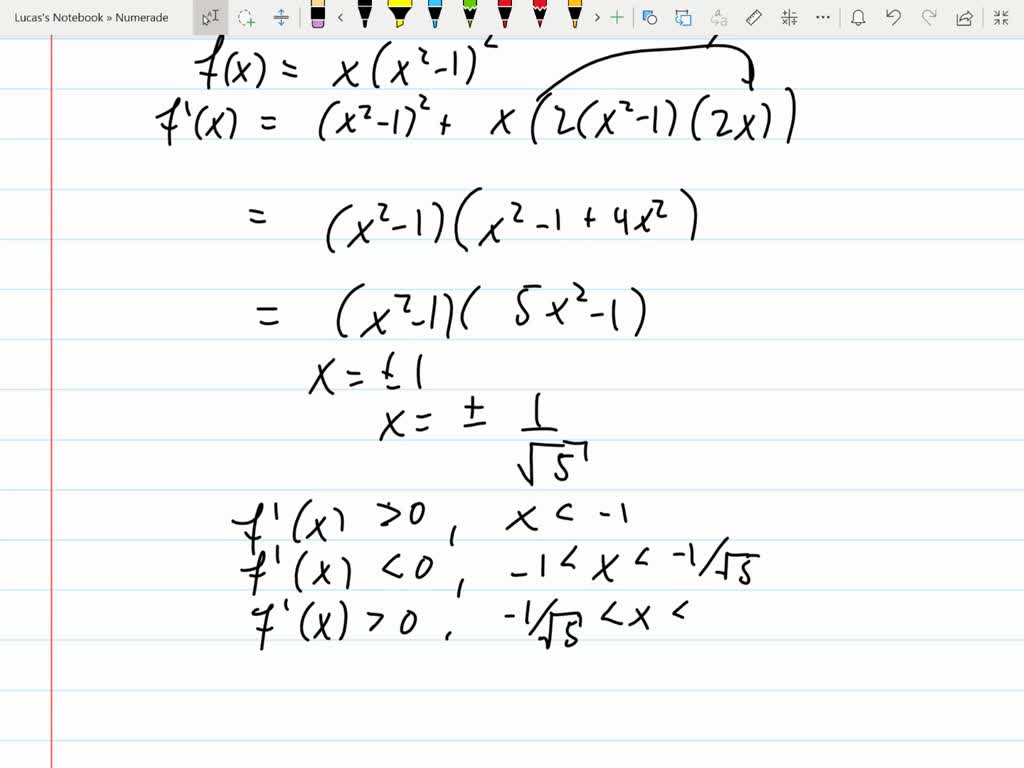 Lucas's Notebook » Numerade
f(x) = x(x²-1)²
f'(x) = (x²-1)² + x(2(x²-1)(2x))
= (x²-1)(x²-1+4x²)
= (x²-1)(5x²-1)
x = ±1
x = ± 1/√5
f'(x) >0, x < -1
f'(x) <0, -1 < x < -1/√5
f'(x) > 0, -1/√5 < x <